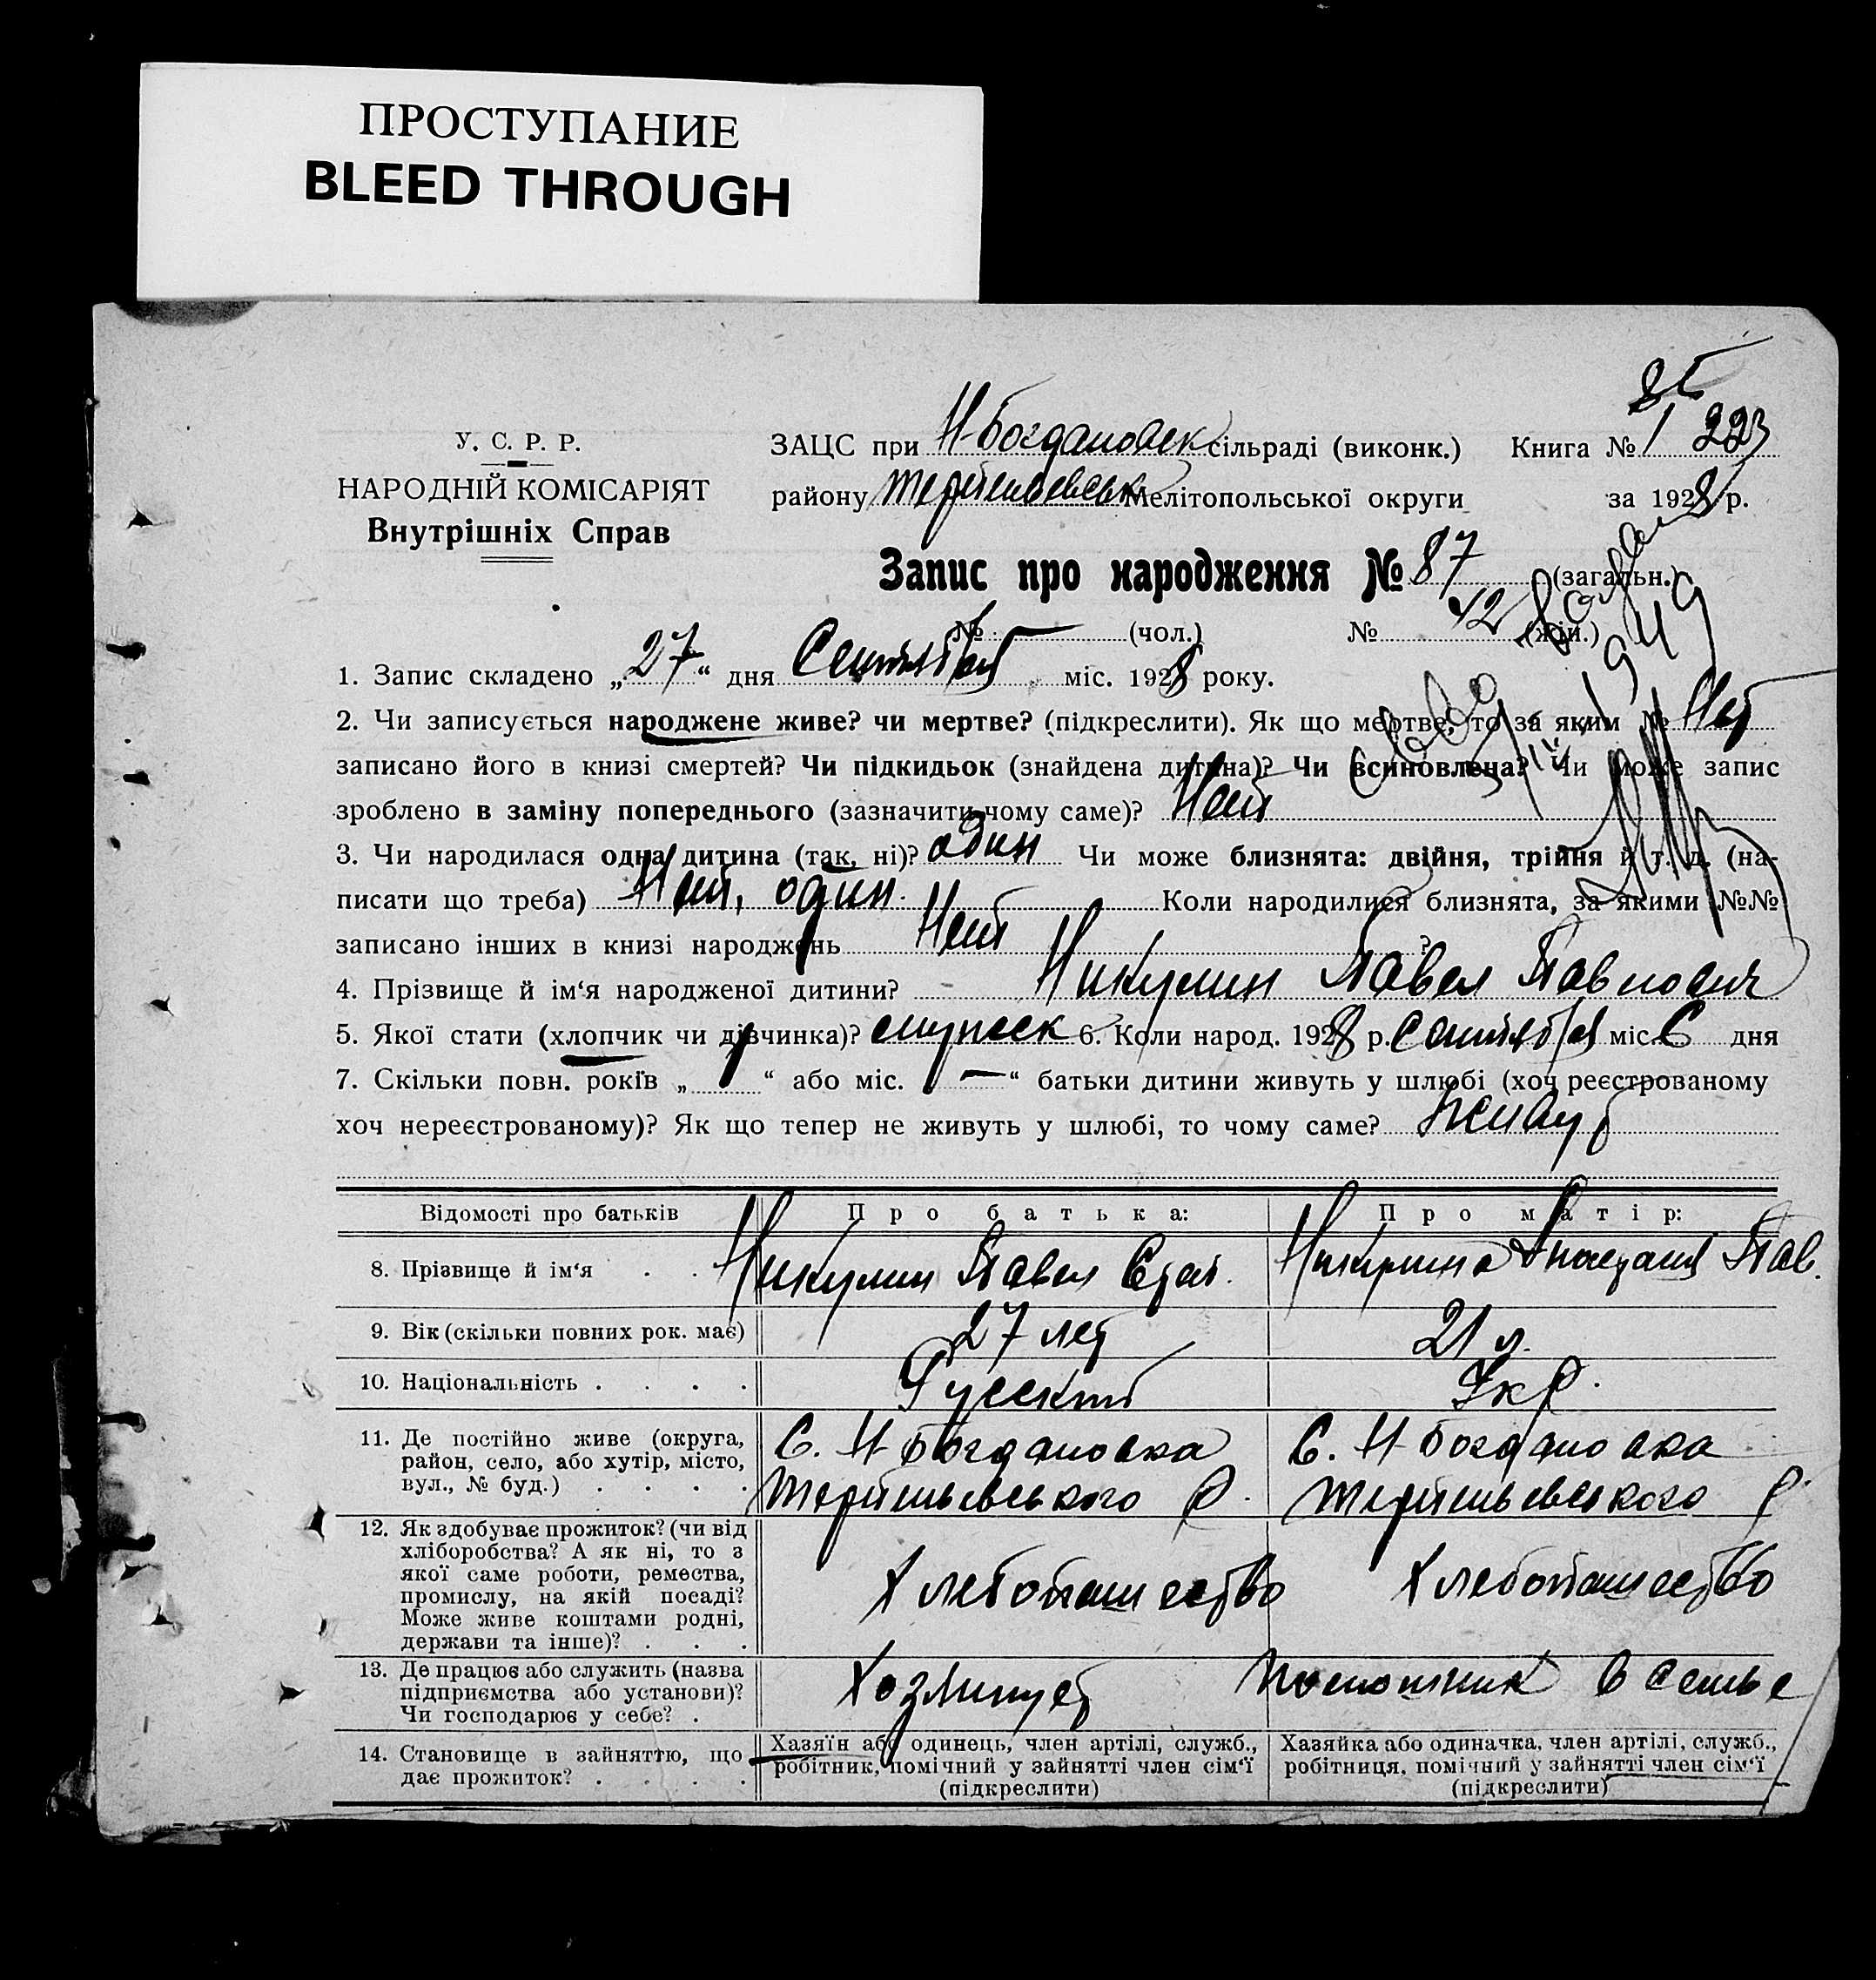 ПРОСТУПАНИЕ
BLEED THROUGH
У. С. Р. Р.
НАРОДНІЙ КОМІСАРІЯТ
Внутрішніх Справ
ЗАЦС при Н-Богдановск сільраді (виконк.) Книга № 1 223
району Терпеньевськ Мелітопольської округи за 1928 р.
Запис про народження № 87 (загальн.)
№ — (чол.) № 42 (жін.)
1. Запис складено „27“ дня Сентября міс. 1928 року.
2. Чи записується народжене живе? чи мертве? (підкреслити). Як що мертве, то за яким № Нет
записано його в книзі смертей? Чи підкидьок (знайдена дитина)? Чи всиновлена? Чи може запис
зроблено в заміну попереднього (зазначити чому саме)? Нет
3. Чи народилася одна дитина (так, ні)? один Чи може близнята: двійня, трійня й т. д. (на-
писати що треба) Нет, один. Коли народилися близнята, за якими №№
записано інших в книзі народжень Нет ?
4. Прізвище й ім‘я народженої дитини? Никулин Павел Павлович
5. Якої стати (хлопчик чи дівчинка)? 6. Коли народ. 1928 р. Сентября міс. 6 дня
7. Скільки повн. років „ “ або міс. „ — “ батьки дитини живуть у шлюбі (хоч реєстрованому
хоч нереєстрованому)? Як що тепер не живуть у шлюбі, то чому саме? Живут
Відомості про батьків Про батька: Про матір:
8. Прізвище й ім‘я . . Никулин Павел Никулина Пав.
9. Вік (скільки повних рок. має) 27 лет 21 л.
10. Національність . . . . Русский Укр.
11. Де постійно живе (округа,
район, село, або хутір, місто,
вул., № буд.) . . . .
С. Н-Богдановка
Терпеньевського р.
С. Н-Богдановка
Терпеньевского р.
12. Як здобуває прожиток? (чи від
хліборобства? А як ні, то з
якої саме роботи, ремества,
промислу, на якій посаді?
Може живе коштами родні,
держави та інше)? . . .
Хлебопашество Хлебопашество
13. Де працює або служить (назва
підприємства або установи)?
Чи господарює у себе? .
Хозяинует помошник в семье
14. Становище в зайняттю, що
дає прожиток? . . . .
Хазяїн або одинець, член артілі, служб.,
робітник, помічний у зайнятті член сім‘ї
(підкреслити)
Хазяйка або одиначка, член артілі, служб.,
робітниця, помічний у зайнятті член сім‘ї
(підкреслити)